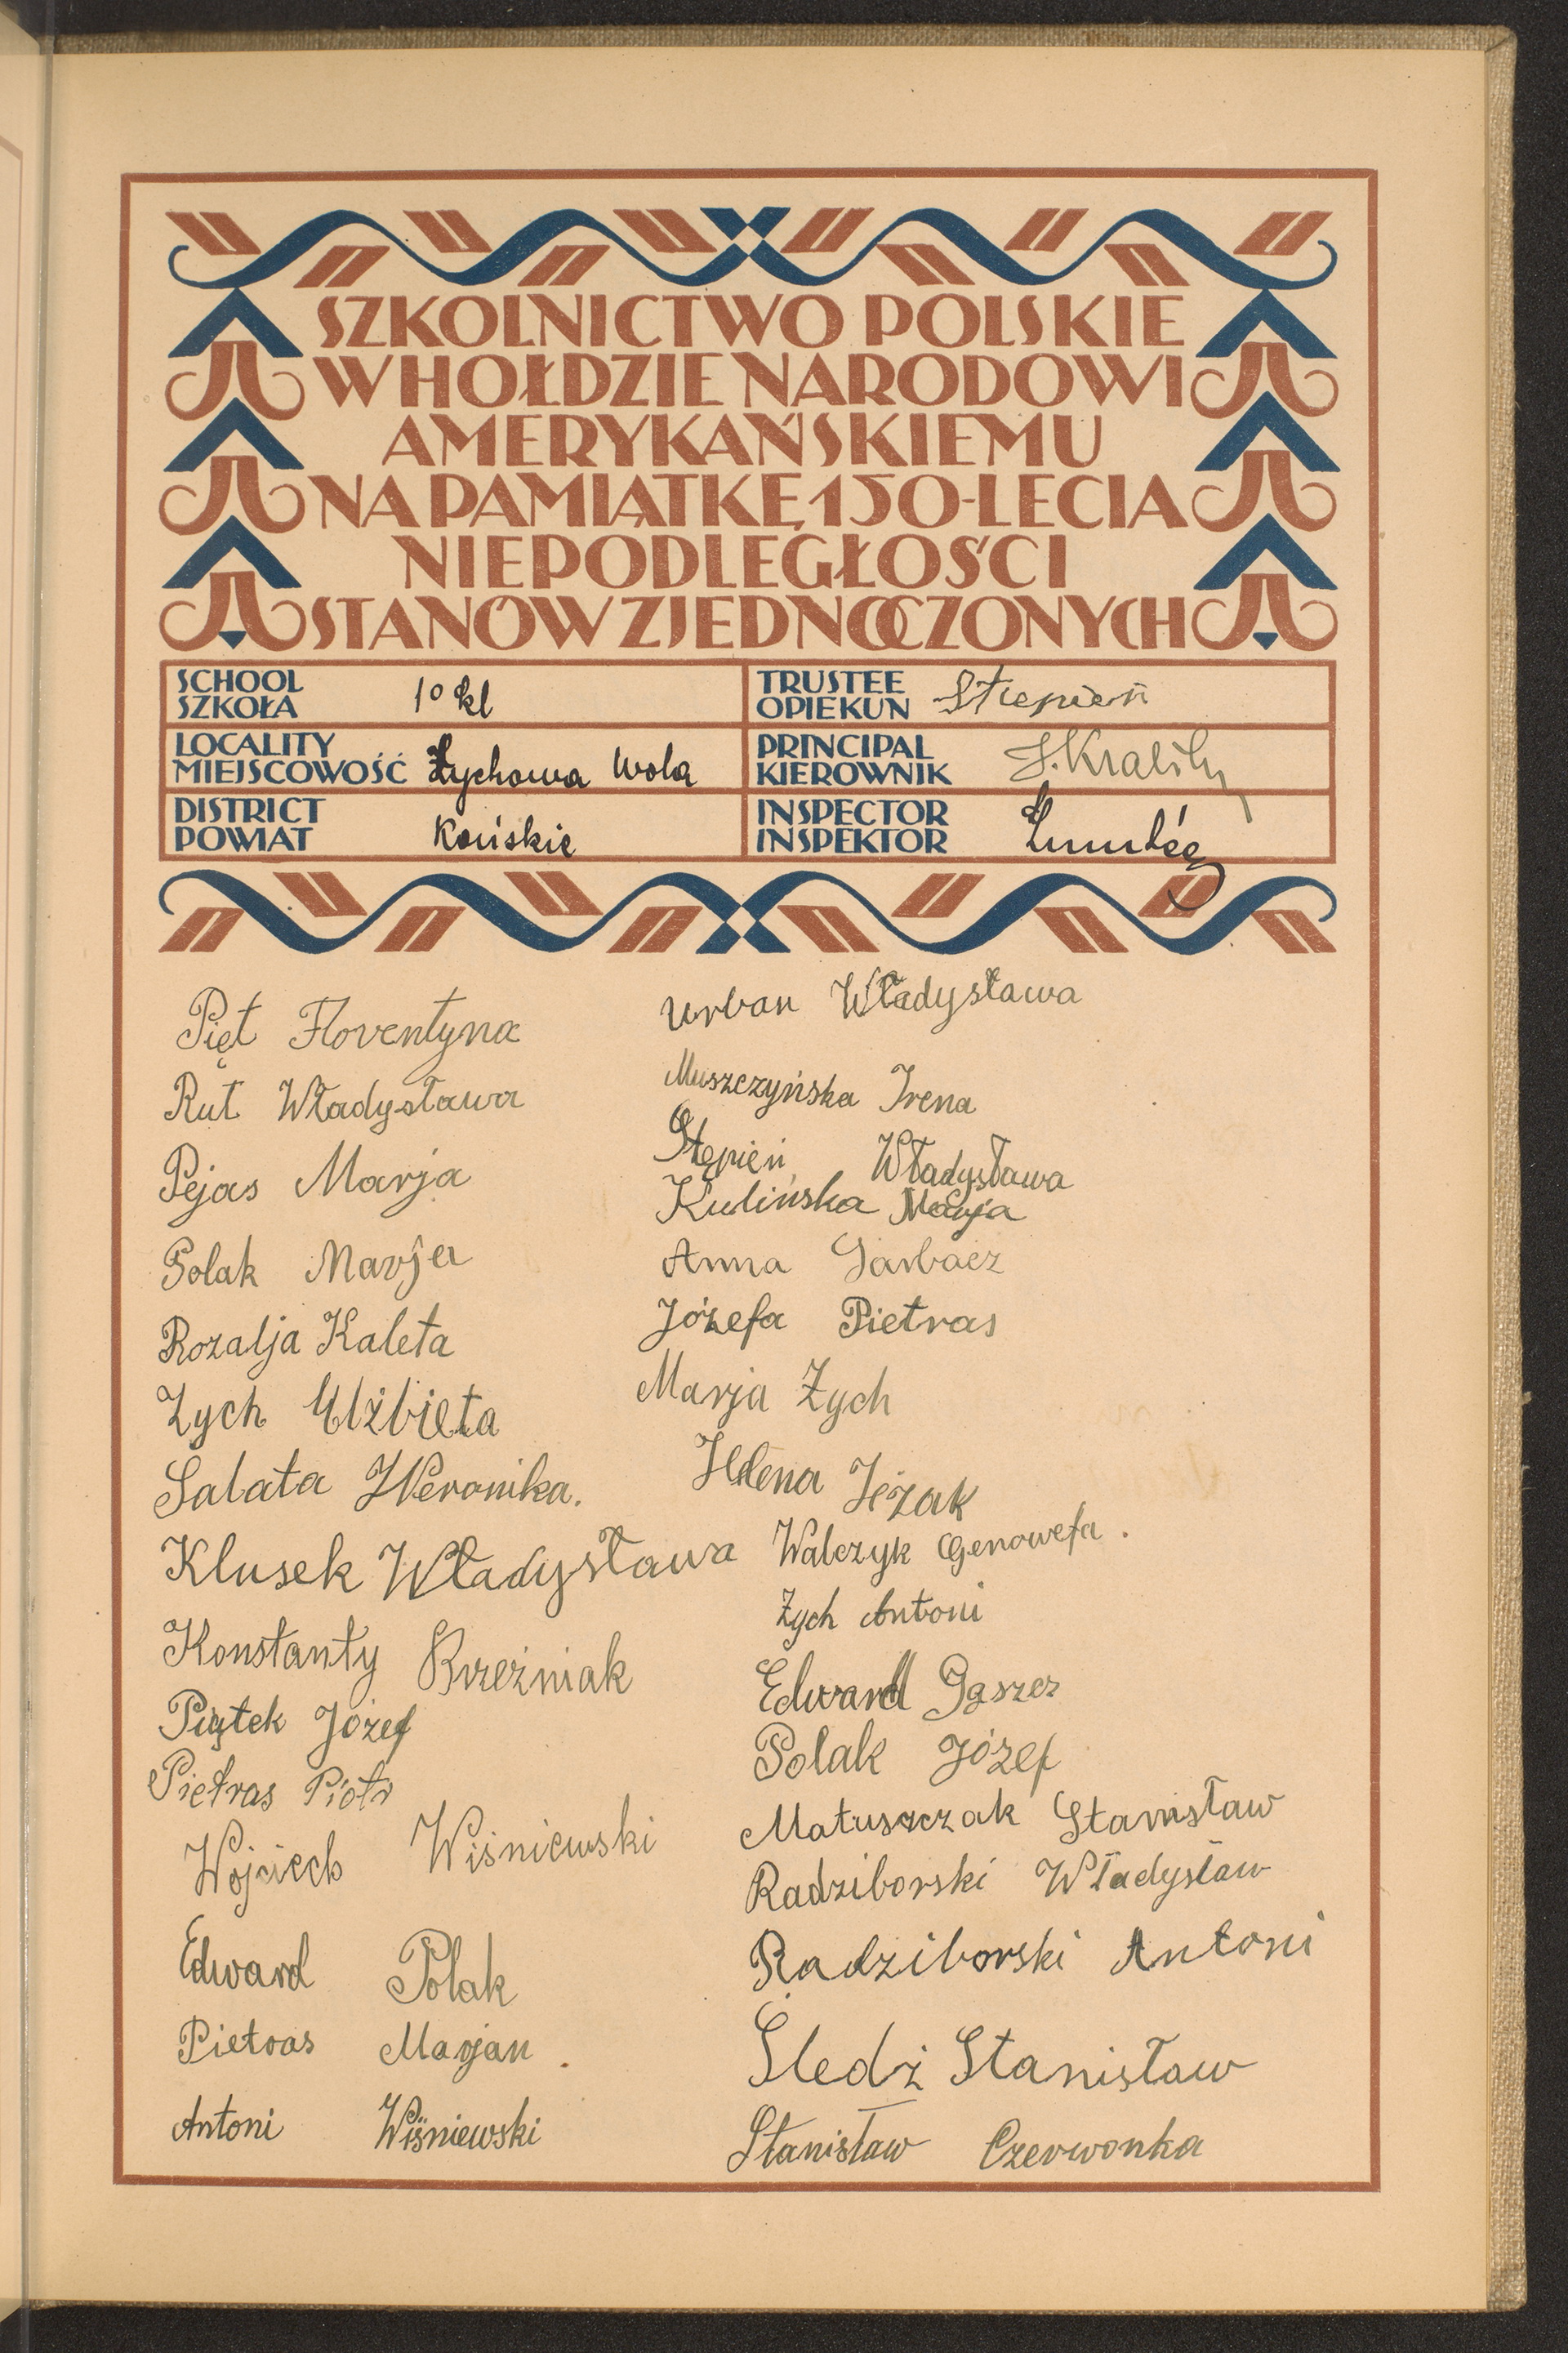 SZKOLNICTWO POLSKIE
W HOŁDZIE NARODOWI
AMERYKAŃSKIEMU
NA PAMIĄTKĘ 150-LECIA
NIEPODLEGŁOŚCI
STANÓW ZJEDNOCZONYCH
SCHOOL
SZKOŁA 1º kl
TRUSTEE
OPIEKUN Stępień
LOCALITY
MIEJSCOWOŚĆ Żychowa Wola
PRINCIPAL
KIEROWNIK
DISTRICT
POWIAT Końskie
INSPECTOR
INSPEKTOR
Pięt Florentyna
Rut Władysława
Pejas Marja
Polak Marja
Rozalja Kaleta
Zych Elżbieta
Salata Weronika.
Klusek Władysława
Konstanty Brzeźniak
Piątek Józef
Pietras Piotr
Wojciech Wiśniewski
Edward Polak
Pietras Marjan.
Antoni Wiśniewski
Urban Władysława
Muszczyńska Irena
Stępień Władysława
Kulińska Marja
Anna Garbacz
Józefa Pietras
Marja Zych
Helena Jeżak
Walczyk Genowefa.
Zych Antoni
Edward Gąszcz
Polak Józef
Matuszczak Stanisław
Radziborski Władysław
Radziborski Antoni
Śledź Stanisław
Stanisław Czerwonka